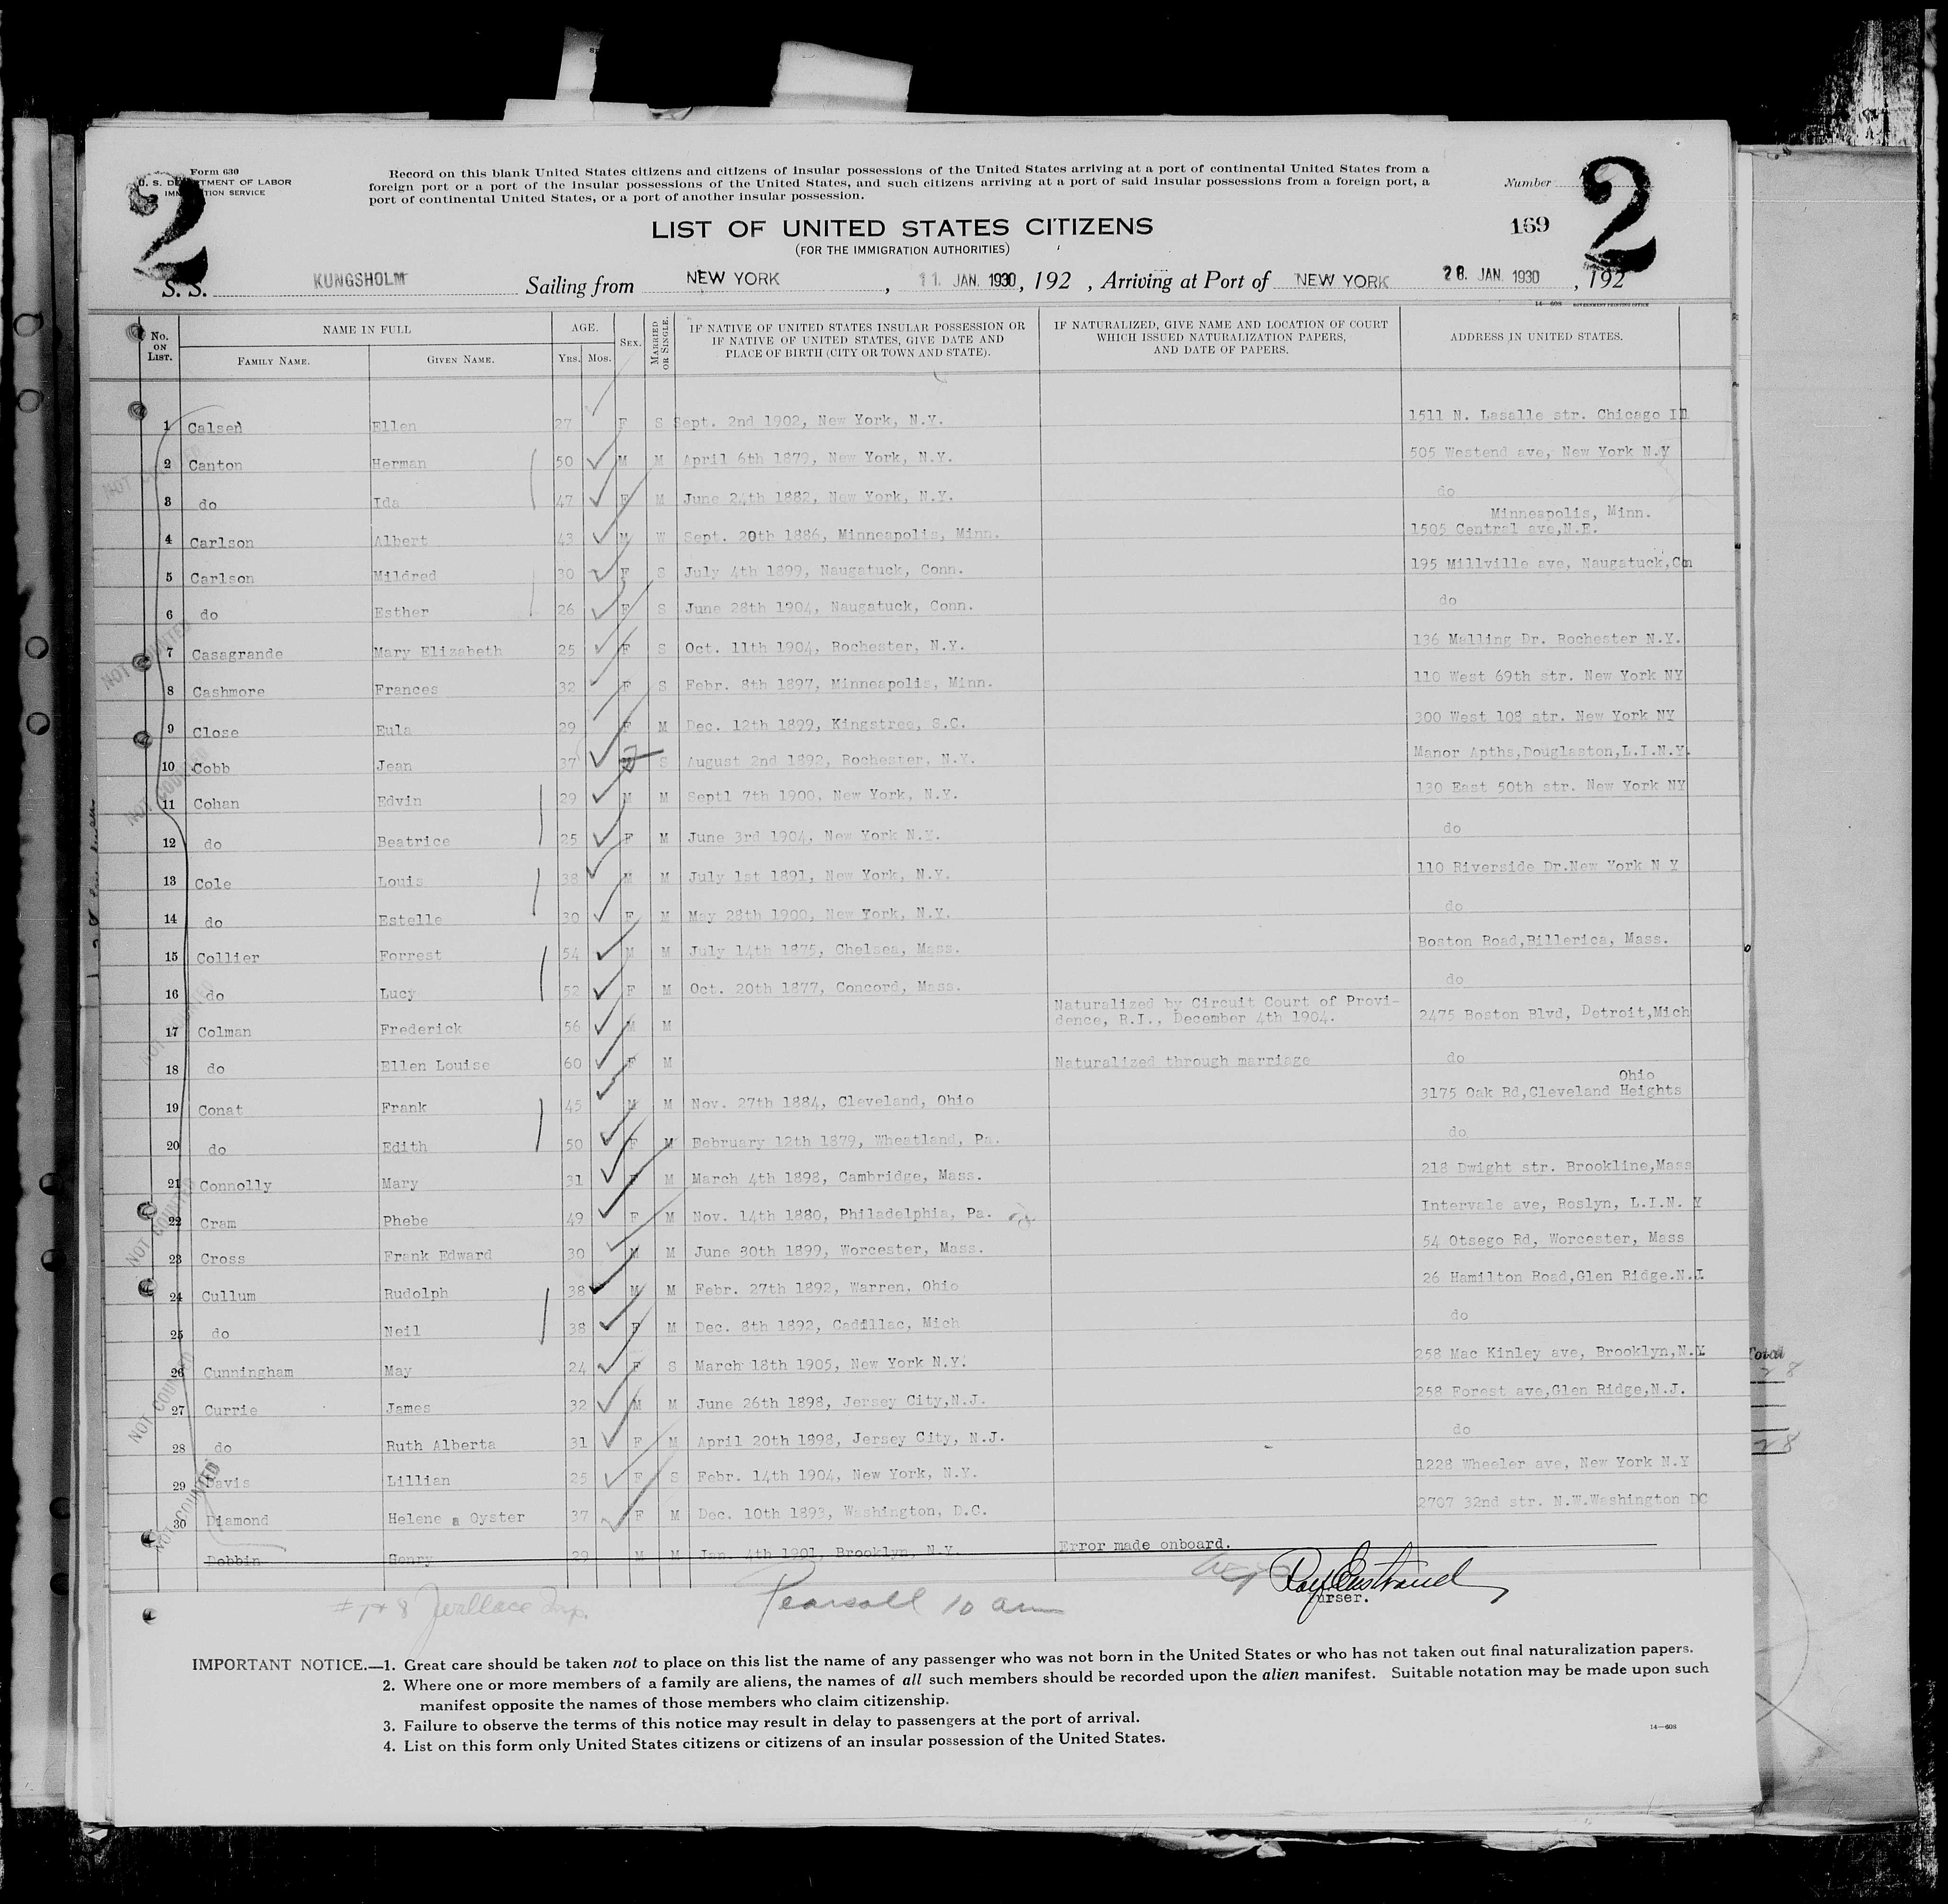 2
2
Form 630
U. S. DEPARTMENT OF LABOR
IMMIGRATION SERVICE
Record on this blank United States citizens and citizens of insular possessions of the United States arriving at a port of continental United States from a
foreign port or a port of the insular possessions of the United States, and such citizens arriving at a port of said insular possessions from a foreign port, a
port of continental United States, or a port of another insular possession.
Number
169
LIST OF UNITED STATES CITIZENS
(FOR THE IMMIGRATION AUTHORITIES)
S. S. KUNGSHOLM Sailing from NEW YORK, 11. JAN. 1930, 192 , Arriving at Port of NEW YORK 28. JAN. 1930, 192
14—608 GOVERNMENT PRINTING OFFICE
No. ON LIST. NAME IN FULL FAMILY NAME. GIVEN NAME. AGE. YRS. MOS. SEX. MARRIED OR SINGLE.
IF NATIVE OF UNITED STATES INSULAR POSSESSION OR
IF NATIVE OF UNITED STATES, GIVE DATE AND
PLACE OF BIRTH (CITY OR TOWN AND STATE).
IF NATURALIZED, GIVE NAME AND LOCATION OF COURT
WHICH ISSUED NATURALIZATION PAPERS,
AND DATE OF PAPERS.
ADDRESS IN UNITED STATES.
1 Calsen Ellen 27 F S Sept. 2nd 1902, New York, N.Y. 1511 N. Lasalle str. Chicago Ill
2 Canton Herman 50 M M April 6th 1879, New York, N.Y. 505 Westend ave, New York N.Y
3 do Ida 47 F M June 24th 1882, New York, N.Y. do
Minneapolis, Minn.
4 Carlson Albert 43 M W Sept. 20th 1886, Minneapolis, Minn. 1505 Central ave,N.E.
5 Carlson Mildred 30 F S July 4th 1899, Naugatuck, Conn. 195 Millville ave, Naugatuck,Con
6 do Esther 26 F S June 28th 1904, Naugatuck, Conn. do
7 Casagrande Mary Elizabeth 25 F S Oct. 11th 1904, Rochester, N.Y. 136 Malling Dr. Rochester N.Y.
8 Cashmore Frances 32 F S Febr. 8th 1897, Minneapolis, Minn. 110 West 69th str. New York NY
9 Close Eula 29 F M Dec. 12th 1899, Kingstree, S.C. 300 West 108 str. New York NY
10 Cobb Jean 37 S August 2nd 1892, Rochester, N.Y. Manor Apths,Douglaston,L.I.N.Y.
11 Cohan Edvin 29 M M Septl 7th 1900, New York, N.Y. 130 East 50th str. New York NY
12 do Beatrice 25 F M June 3rd 1904, New York N.Y. do
13 Cole Louis 38 M M July 1st 1891, New York, N.Y. 110 Riverside Dr.New York N Y
14 do Estelle 30 F M May 28th 1900, New York, N.Y. do
15 Collier Forrest 54 M M July 14th 1875, Chelsea, Mass. Boston Road,Billerica, Mass.
16 do Lucy 52 F M Oct. 20th 1877, Concord, Mass. do
Naturalized by Circuit Court of Provi-
17 Colman Frederick 56 M M dence, R.I., December 4th 1904. 2475 Boston Blvd, Detroit,Mich
18 do Ellen Louise 60 F M Naturalized through marriage do
Ohio
19 Conat Frank 45 M M Nov. 27th 1884, Cleveland, Ohio 3175 Oak Rd,Cleveland Heights
20 do Edith 50 F M February 12th 1879, Wheatland, Pa. do
21 Connolly Mary 31 F M March 4th 1898, Cambridge, Mass. 218 Dwight str. Brookline,Mass
22 Cram Phebe 49 F M Nov. 14th 1880, Philadelphia, Pa. Intervale ave, Roslyn, L.I.N. Y
23 Cross Frank Edward 30 M M June 30th 1899, Worcester, Mass. 54 Otsego Rd, Worcester, Mass
24 Cullum Rudolph 38 M M Febr. 27th 1892, Warren. Ohio 26 Hamilton Road,Glen Ridge.N.J.
25 do Neil 38 F M Dec. 8th 1892, Cadillac, Mich do
26 Cunningham May 24 F S March 18th 1905, New York N.Y. 258 Mac Kinley ave, Brooklyn,N.Y.
27 Currie James 32 M M June 26th 1898, Jersey City,N.J. 258 Forest ave,Glen Ridge,N.J.
28 do Ruth Alberta 31 F M April 20th 1898, Jersey City, N.J. do
29 Davis Lillian 25 F S Febr. 14th 1904, New York, N.Y. 1228 Wheeler ave, New York N.Y
30 Diamond Helene a Oyster 37 F M Dec. 10th 1893, Washington, D.C. 2707 32nd str. N.W.Washington DC
Dobbin Henry 29 M M Jan. 4th 1901, Brooklyn, N.Y. Error made onboard.
NOT COUNTED
NOT COUNTED
NOT COUNTED
NOT COUNTED
NOT COUNTED
NOT COUNTED
NOT COUNTED
Total
28
28
Pearsall 10 am
Purser.
IMPORTANT NOTICE.—1. Great care should be taken not to place on this list the name of any passenger who was not born in the United States or who has not taken out final naturalization papers.
2. Where one or more members of a family are aliens, the names of all such members should be recorded upon the alien manifest. Suitable notation may be made upon such
manifest opposite the names of those members who claim citizenship.
3. Failure to observe the terms of this notice may result in delay to passengers at the port of arrival.
4. List on this form only United States citizens or citizens of an insular possession of the United States.
14—608